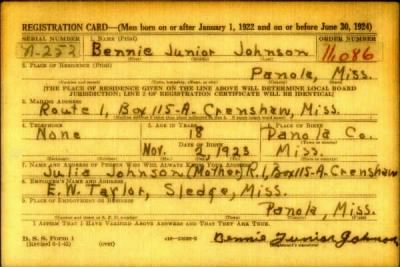 REGISTRATION CARD—(Men born on or after January 1, 1922 and on or before June 30, 1924)
SERIAL NUMBER 1. NAME (Print) ORDER NUMBER
N-253 Bennie Junior Johnson 11,086
(First) (Middle) (Last)
2. PLACE OF RESIDENCE (Print)
Panola, Miss.
[THE PLACE OF RESIDENCE GIVEN ON THE LINE ABOVE WILL DETERMINE LOCAL BOARD
JURISDICTION; LINE 2 OF REGISTRATION CERTIFICATE WILL BE IDENTICAL]
3. MAILING ADDRESS
Route 1, Box 115-A. Crenshaw, Miss.
4. TELEPHONE 5. AGE IN YEARS 6. PLACE OF BIRTH
None 18 Panola Co.
DATE OF BIRTH
Nov. 2 1923 Miss.
7. NAME AND ADDRESS OF PERSON WHO WILL ALWAYS KNOW YOUR ADDRESS
Julia Johnson (Mother) R.1, Box 115-A. Crenshaw
8. EMPLOYER'S NAME AND ADDRESS
E. W. Taylor, Sledge, Miss.
9. PLACE OF EMPLOYMENT OR BUSINESS
Panola, Miss.
I AFFIRM THAT I HAVE VERIFIED ABOVE ANSWERS AND THAT THEY ARE TRUE.
D. S. S. Form 1
Bennie Junior Johnson